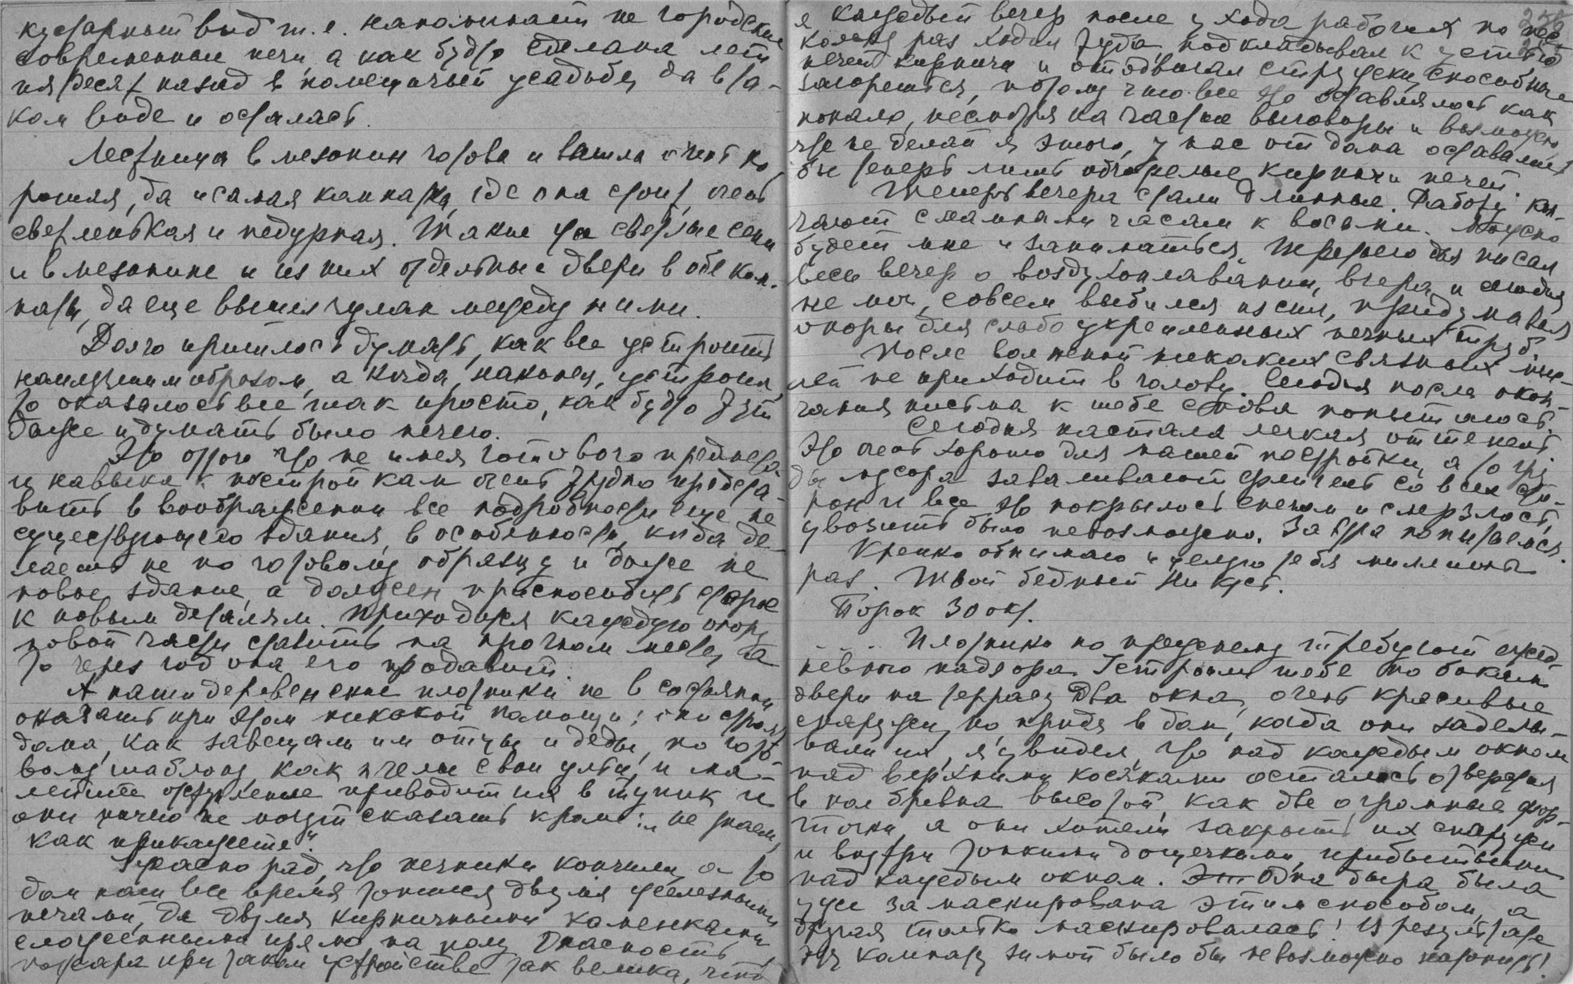 кустарный вид т.е. напоминает не городские
современные печи, а как будто сделана лет
пятьдесят назад в помещичьей усадьбе, да в та-
ком виде и осталась.
Лестница в мезонин готова и вышла очень хо
рошая, да и самая комната, где она стоит, очень
светленькая и недурная. Такие же светлые сени
и в мезонине и из них отдельные двери в обе ком-
наты, да еще вышел чулан между ними.
Долго пришлось думать, как все устроить
наилучшим образом, а когда, наконец, устроил,
то оказалось все так просто, как будто тут
даже и думать было нечего.
Это оттого что не имея готового
и навыка к постройкам очень трудно представ-
вить в воображении все подробности еще не
существующего здания, в особенности, когда де-
лаешь не по готовому образцу и даже не
новое здание, а должен приспособить старое
к новым деталям. Приходится каждую опору
новой части ставить на прочном месте, а
то через год она его продавит.
А наши деревенские плотники не в состоянии
оказать при этом никакой помощи; они строят
дома, как завещали им отцы и деды, по гото-
вому шаблону, как пчелы свои ульи, и ма-
лейшее отступление приводит их в тупик и
они ничего не могут сказать кроме: „не знаем,
как прикажете".
рад, что печники кончили, а то
дом наш все время топился двумя железными
печами, да двумя кирпичными каменками
сложенными прямо на полу. Опасность
пожара при таком устройстве так велика, что
я каждый вечер после ухода рабочих по нес
кольку раз ходил туда, подкладывал к устью
печей кирпичи и отодвигал стружки, способные
загореться, потому что все это оставлялось как
попало, несмотря на частые выговоры и возможно
что не делай я этого, у нас от дома оставались
бы теперь лишь обгорелые кирпичи печей.
Теперь вечера стали длинные. Работу кон-
чают с лампами часам к восьми. Можно
будет мне и заниматься. Третьего дня писал
весь вечер о воздухоплавании, вчера и сегодня
не мог, совсем выбился из сил, придумывая
опоры для слабо укрепленных печных труб.
После волнений никаких связных мыс-
лей не приходит в голову. Сегодня после окон-
чания письма к тебе снова попытаюсь.
Сегодня настала легкая оттепель.
Это очень хорошо для нашей постройки, а то гру
ды мусора заваливают флигель со всех сто-
рон и все это покрылось снегом и смерзлось,
увозить было невозможно. Завтра попытаемся.
Крепко обнимаю и целую тебя миллионы
раз. Твой бедный
Борок 30 окт.
.... Плотники по прежнему требуют ежед-
невного надзора. Устроили тебе по бокам
двери на террасу два окна, очень красивые
снаружи, но придя в дом, когда они заделы-
вали их, я увидел, что над каждым окном
над верхними косяками осталось отверстия
в пол бревна высотой, как две огромные фор-
точки, а они хотели закрыть их снаружи
и внутри тонкими дощечками, прибитыми
над каждым окном. Одна дыра была
уже замаскирована этим способом, а
другая только маскировалась! В результате
эту комнату зимой было бы невозможно натопить!